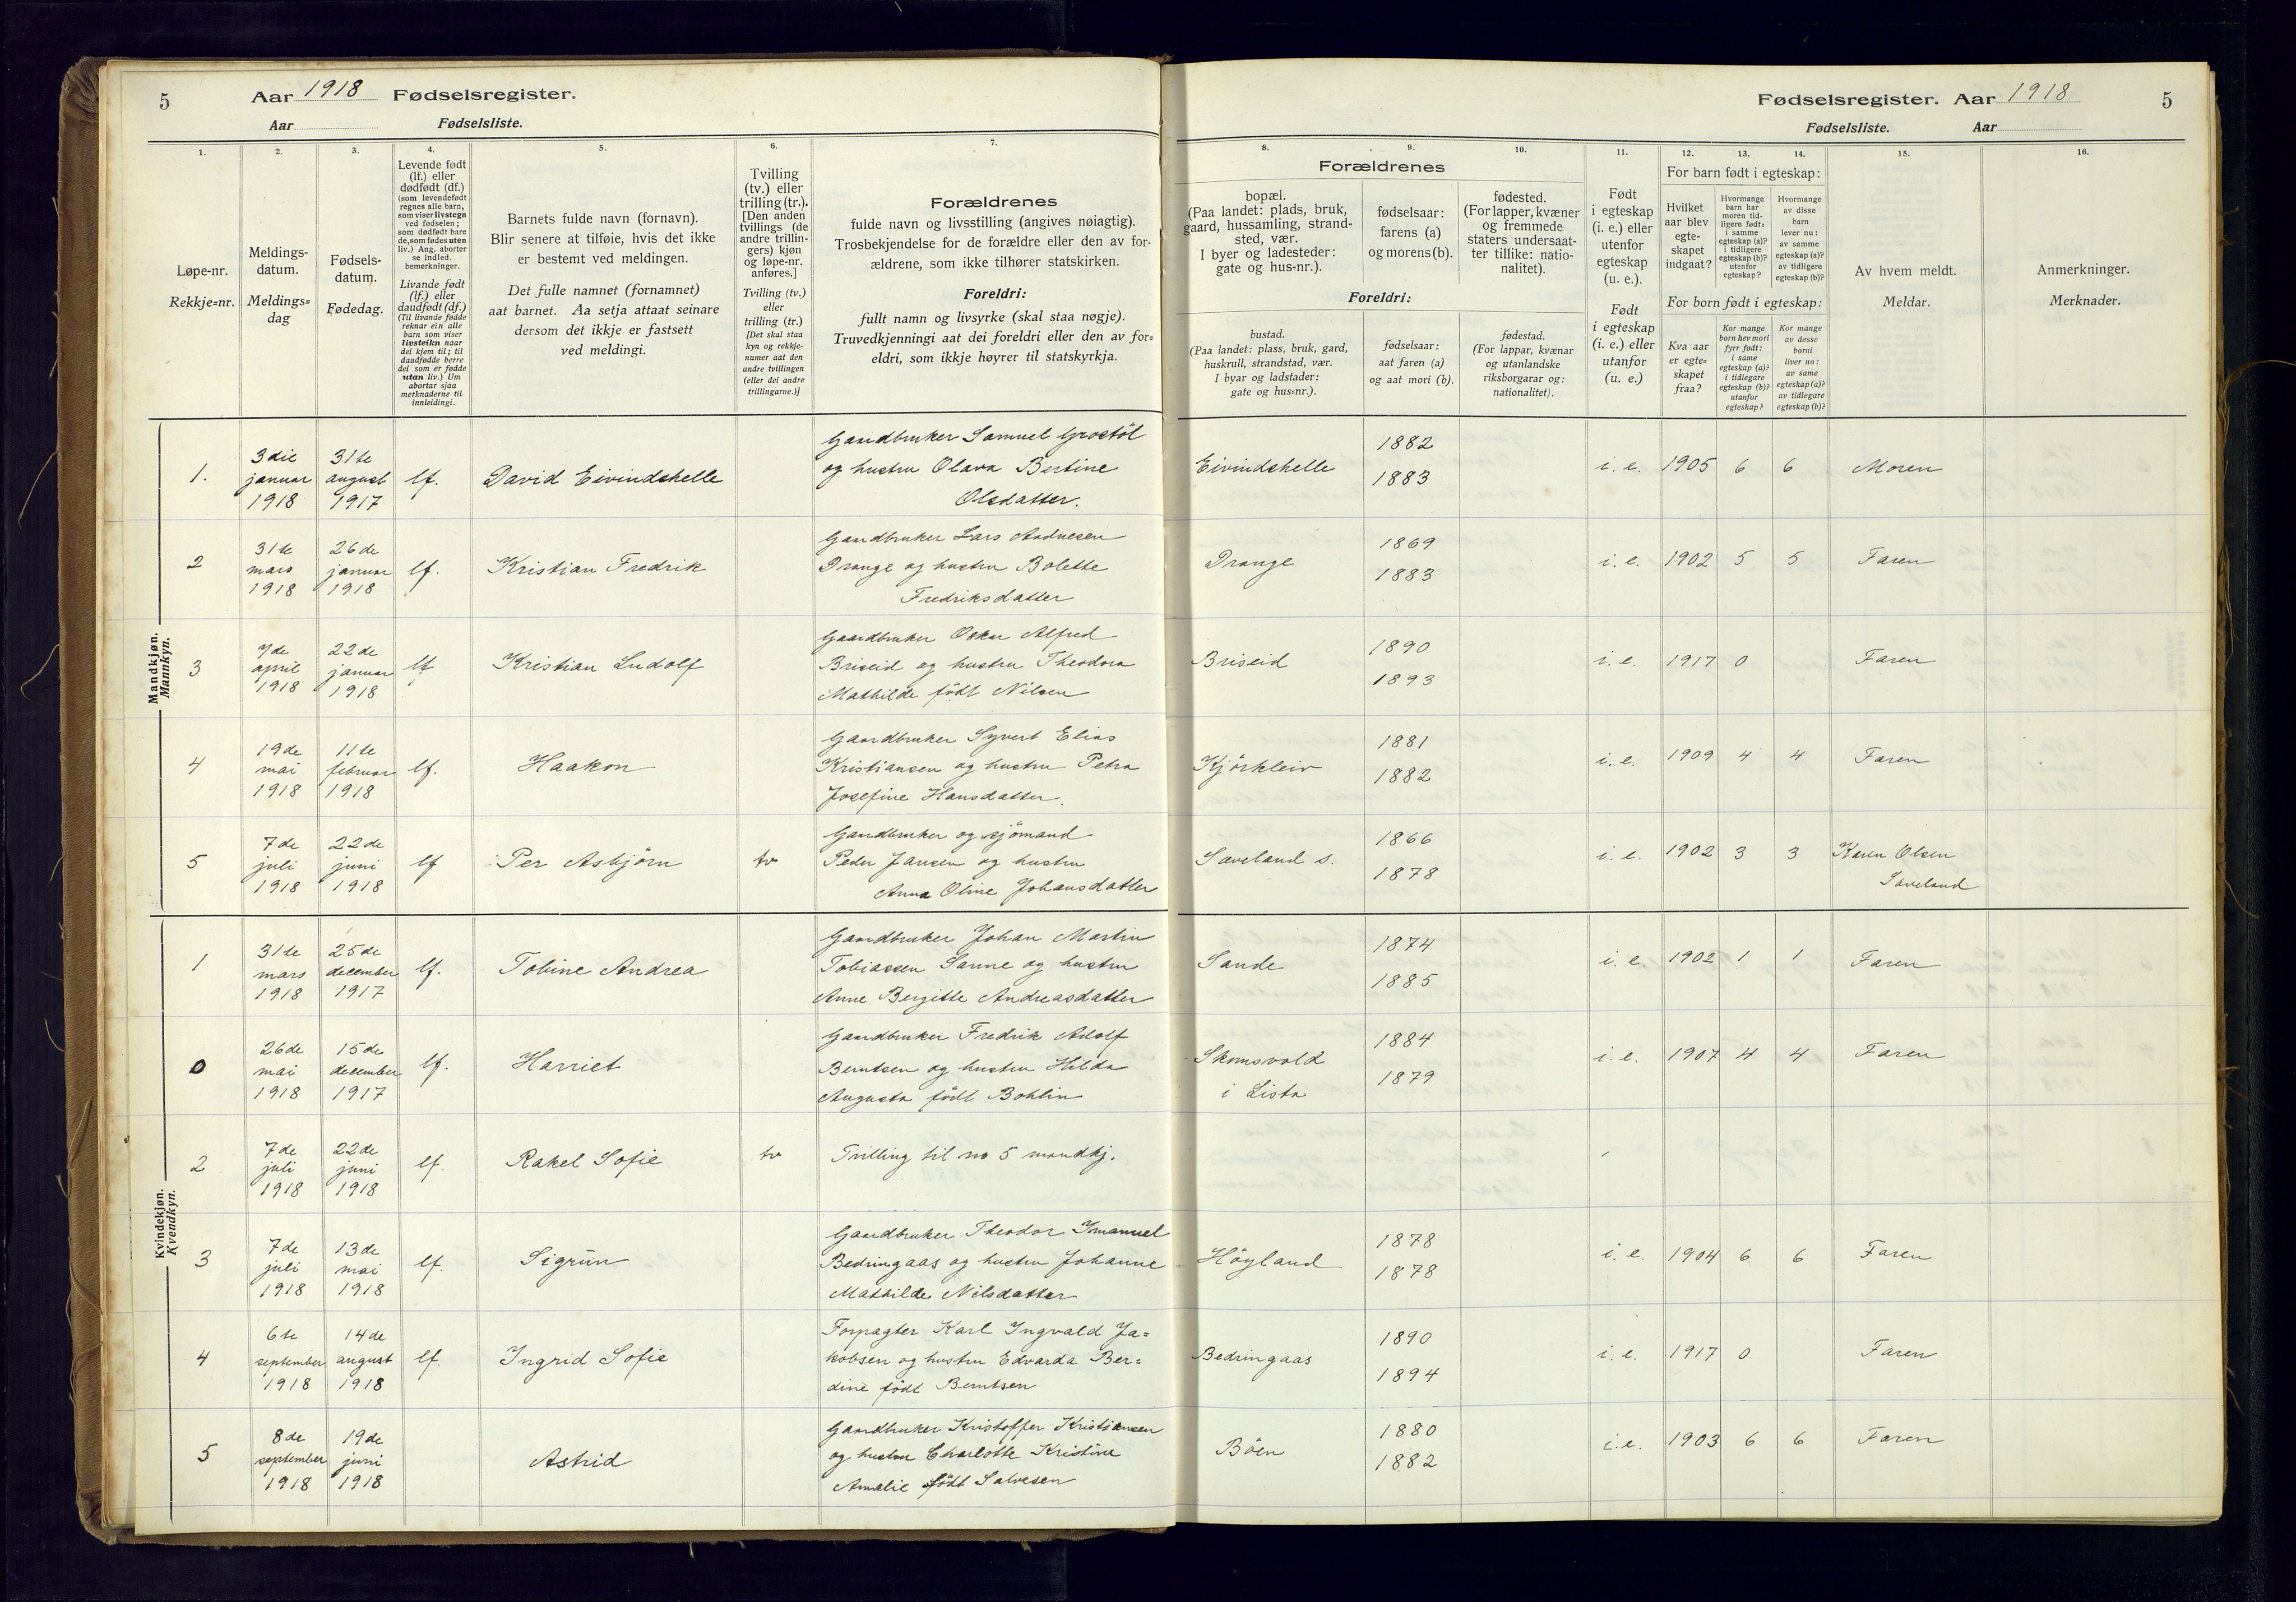 5 Aar 1918 Fødselsregister.
Aar Fødselsliste.
Fødselsregister. Aar 1918 5
Fødselsliste. Aar
1.
Løpe-nr.
Rekkje=nr.
2.
Meldings-
datum.
Meldings=
dag
3.
Fødsels-
datum.
Fødedag.
4.
Levende født
(lf.) eller
dødfødt (df.)
(som levendefødt
regnes alle barn,
som viser livstegn
ved fødselen;
som dødfødt bare
de, som fødes uten
liv.) Ang. aborter
se indled.
bemerkninger.
Livande født
(lf.) eller
daudfødt (df.)
(Til livande fødde
reknar ein alle
barn som viser
livsteikn naar
dei kjem til; til
daudfødde berre
dei som er fødde
utan liv.) Um
abortar sjaa
merknaderne til
innleidingi.
5.
Barnets fulde navn (fornavn).
Blir senere at tilføie, hvis det ikke
er bestemt ved meldingen.
Det fulle namnet (fornamnet)
aat barnet. Aa setja attaat seinare
dersom det ikkje er fastsett
ved meldingi.
6.
Tvilling
(tv.) eller
trilling (tr.).
[Den anden
tvillings (de
andre trillin-
gers) kjøn
og løpe-nr.
anføres.]
Tvilling (tv.)
eller
trilling (tr.)
[Det skal staa
kyn og rekkje-
numer aat den
andre tvillingen
(eller dei andre
trillingarne.)]
7.
Forældrenes
fulde navn og livsstilling (angives nøiagtig).
Trosbekjendelse for de forældre eller den av for-
ældrene, som ikke tilhører statskirken.
Foreldri:
fullt namn og livsyrke (skal staa nøgje).
Truvedkjenningi aat dei foreldri eller den av for=
eldri, som ikkje høyrer til statskyrkja.
Forældrenes
8.
bopæl.
(Paa landet: plads, bruk,
gaard, hussamling, strand-
sted, vær.
I byer og ladesteder:
gate og hus-nr.).
9.
fødselsaar:
farens (a)
og morens (b).
10.
fødested.
(For lapper, kvæner
og fremmede
staters undersaat-
ter tillike: natio-
nalitet).
Foreldri:
bustad.
(Paa landet: plass, bruk, gard,
huskrull, strandstad, vær.
I byar og ladstader:
gate og hus=nr.).
fødselsaar:
aat faren (a)
og aat mori (b).
fødestad.
(For lappar, kvænar
og utanlandske
riksborgarar og:
nationalitet).
11.
Født
i egteskap
(i. e.) eller
utenfor
egteskap
(u. e.).
Født
i egteskap
(i. e.) eller
utanfor
(u. e.)
For barn født i egteskap:
12.
Hvilket
aar blev
egte-
skapet
indgaat?
13.
Hvormange
barn har
moren tid-
ligere født:
i samme
egteskap (a)?
i tidligere
egteskap (b)?
utenfor
egteskap?
14.
Hvormange
av disse
barn
lever nu:
av samme
egteskap (a)?
av tidligere
egteskap (b)?
For born født i egteskap:
Kva aar
er egte=
skapet
fraa?
Kor mange
born hev mori
fyrr født:
i same
egteskap (a)?
i tidlegare
egteskap (b)?
utanfor
egteskap?
Kor mange
av desse
borni
liver no:
av same
egteskap (a)?
av tidlegare
egteskap (b)?
15.
Av hvem meldt.
Meldar.
16.
Anmerkninger.
Merknader.
Mandkjøn.
Mannkyn.
1. 3die januar 1918 31te august 1917 lf. David Eivindshelle
Gaardbruker Samuel Grostöl
og hustru Olava Bertine
Olsdatter.
Eivindshelle 1882 1883 i. e. 1905 6 6 Moren
2 31te mars 1918 26de januar 1918 lf. Kristian Fredrik
Gaardbruker Lars Andnesen
Drange og hustru Bolette
Fredriksdatter
Drange 1869 1883 i. e. 1902 5 5 Faren
3 7de april 1918 22de januar 1918 lf Kristian Ludolf
Gaardbruker Oskar Alfred
Briseid og hustru Theodora
Mathilde født Nilsen
Briseid 1890 1893 i. e. 1917 0 Faren
4 19de mai 1918 11te februar 1918 lf. Haakon
Gaardbruker Syvert Elias
Kristiansen og hustru Petra
Josefine Hansdatter.
Kjörkleiv 1881 1882 i. e. 1909 4 4 Faren
5 7de juli 1918 22de juni 1918 lf Per Asbjörn tv
Gaardbruker og sjömand
Peder Jansen og hustru
Anna Oline Johansdatter
Saveland s. 1866 1878 i. e. 1902 3 3 Karen Olsen
Saveland
Kvindekjøn.
Kvendkyn.
1 31te mars 1918 25de december 1917 lf. Tobine Andrea
Gaardbruker Johan Martin
Tobiassen Sanne og hustru
Anne Bergitte Andreasdatter
Sande 1874 1885 i. e. 1902 1 1 Faren
0 26de mai 1918 15de december 1917 lf. Harriet
Gaardbruker Fredrik Adolf
Berntsen og hustru Hilda
Augusta født Bohlin
Skomsvold
i Lista
1884 1879 i. e. 1907 4 4 Faren
2 7de juli 1918 22de juni 1918 lf. Rakel Sofie tv Tvilling til no 5 mandkj.
3 7de juli 1918 13de mai 1918 lf. Sigrun
Gaardbruker Theodor Imanuel
Bedringaas og hustru Johanne
Mathilde Nilsdatter
Höyland 1878 1878 i. e. 1904 6 6 Faren
4 6te september 1918 14de august 1918 lf. Ingrid Sofie
Forpagter Karl Ingvald Ja=
kobsen og hustru Edvarda Ber=
dine født Berntsen
Bedringaas 1890 1894 i. e. 1917 0 Faren
5 8de september 1918 19de juni 1918 Astrid
Gaardbruker Kristoffer Kristiansen
og hustru Charlotte Kristine
Amalie født Salvesen
Böen 1880 1882 i. e. 1903 6 6 Faren